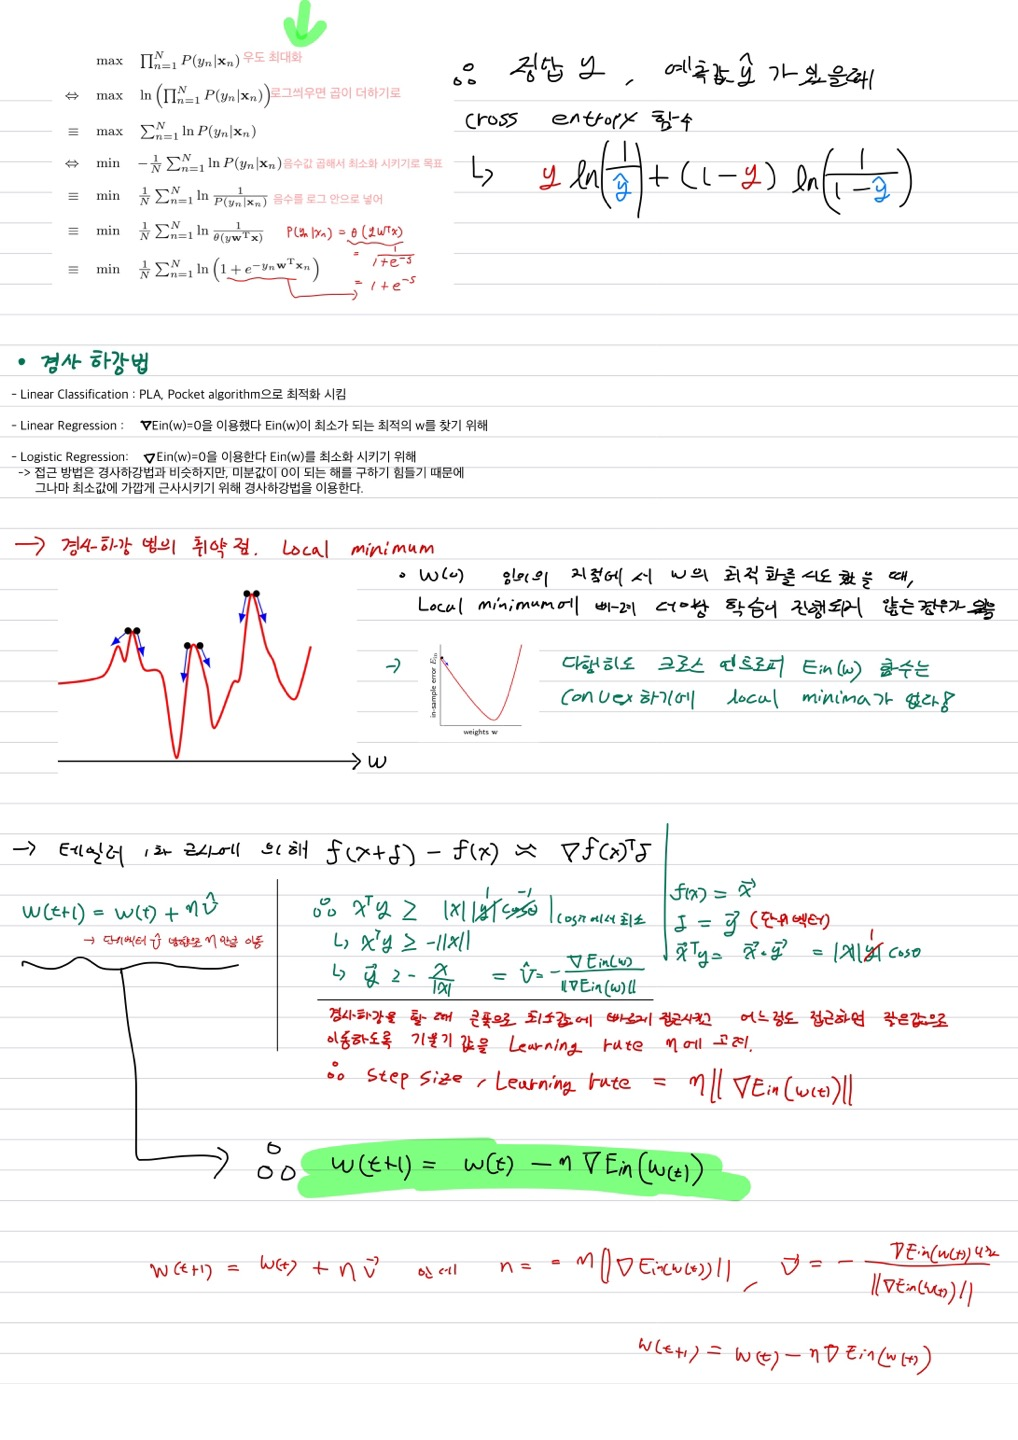 max ∏_{n=1}^{N} P(y_n|x_n) 우도 최대화
⇔ max ln(∏_{n=1}^{N} P(y_n|x_n)) 로그씌우면 곱이 더하기로
≡ max ∑_{n=1}^{N} ln P(y_n|x_n)
⇔ min -1/N ∑_{n=1}^{N} ln P(y_n|x_n) 음수값 곱해서 최소화 시키기로 목표
≡ min 1/N ∑_{n=1}^{N} ln 1/P(y_n|x_n) 음수를 로그 안으로 넣어
≡ min 1/N ∑_{n=1}^{N} ln 1/θ(yw^Tx) P(y_n|x_n) = θ(yw^Tx)
= 1/(1+e^{-s})
≡ min 1/N ∑_{n=1}^{N} ln(1 + e^{-y_n w^T x_n})
= 1+e^{-s}
∴ 정답 y, 예측값 ŷ가 있을때
cross entropy 함수
↳ y ln(1/ŷ) + (1-y) ln(1/(1-ŷ))
• 경사 하강법
- Linear Classification : PLA, Pocket algorithm으로 최적화 시킴
- Linear Regression : ∇Ein(w)=0을 이용했다 Ein(w)이 최소가 되는 최적의 w를 찾기 위해
- Logistic Regression: ∇Ein(w)=0을 이용한다 Ein(w)를 최소화 시키기 위해
-> 접근 방법은 경사하강법과 비슷하지만, 미분값이 0이 되는 해를 구하기 힘들기 때문에
그나마 최소값에 가깝게 근사시키기 위해 경사하강법을 이용한다.
→ 경사하강 법의 취약점. Local minimum
• w(0) 임의의 지점에서 w의 최적화를 시도 했을 때,
Local minimum에 빠져 더이상 학습이 진행되지 않는 경우가 있음
→ in-sample error E_in
weights w
다행히도 크로스 엔트로피 Ein(w) 함수는
convex하기에 local minima가 없다!
w
→ 테일러 1차 근사에 의해 f(x+δ) - f(x) ≈ ∇f(x)^Tδ
w(t+1) = w(t) + η v̂
→ 단위벡터 v̂ 방향으로 η 만큼 이동
∴ x^T y ≥ |x||y| cosθ | cosπ에서 최소
1 -1
↳ x^T y ≥ -1||x||
↳ y⃗ ≥ - x/|x| = v̂ = - ∇Ein(w)/||∇Ein(w)||
f(x) = x⃗
δ = y⃗ (단위벡터)
x⃗^T y = x⃗·y⃗ = |x||y| cosθ
1
경사하강을 할 때 큰폭으로 최소값에 빠르게 접근시키고 어느정도 접근하면 작은값으로
이동하도록 기울기 값을 Learning rate η에 고려.
∴ step size, Learning rate = η||∇Ein(w(t))||
∴ w(t+1) = w(t) - η∇Ein(w(t))
w(t+1) = w(t) + η v⃗ 인데 n = = η||∇Ein(w(t))||, v⃗ = - ∇Ein(w(t)) / ||∇Ein(w(t))||
w(t+1) = w(t) - η∇Ein(w(t))